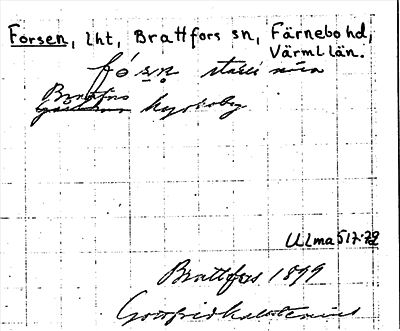 Forsen, lht, Brattfors sn, Färnebo hd,
Värml län.
fósn
Brattfors
kyrkoby
Ulma 517:79
Brattfors 1899
Gottfrid Kallstenius